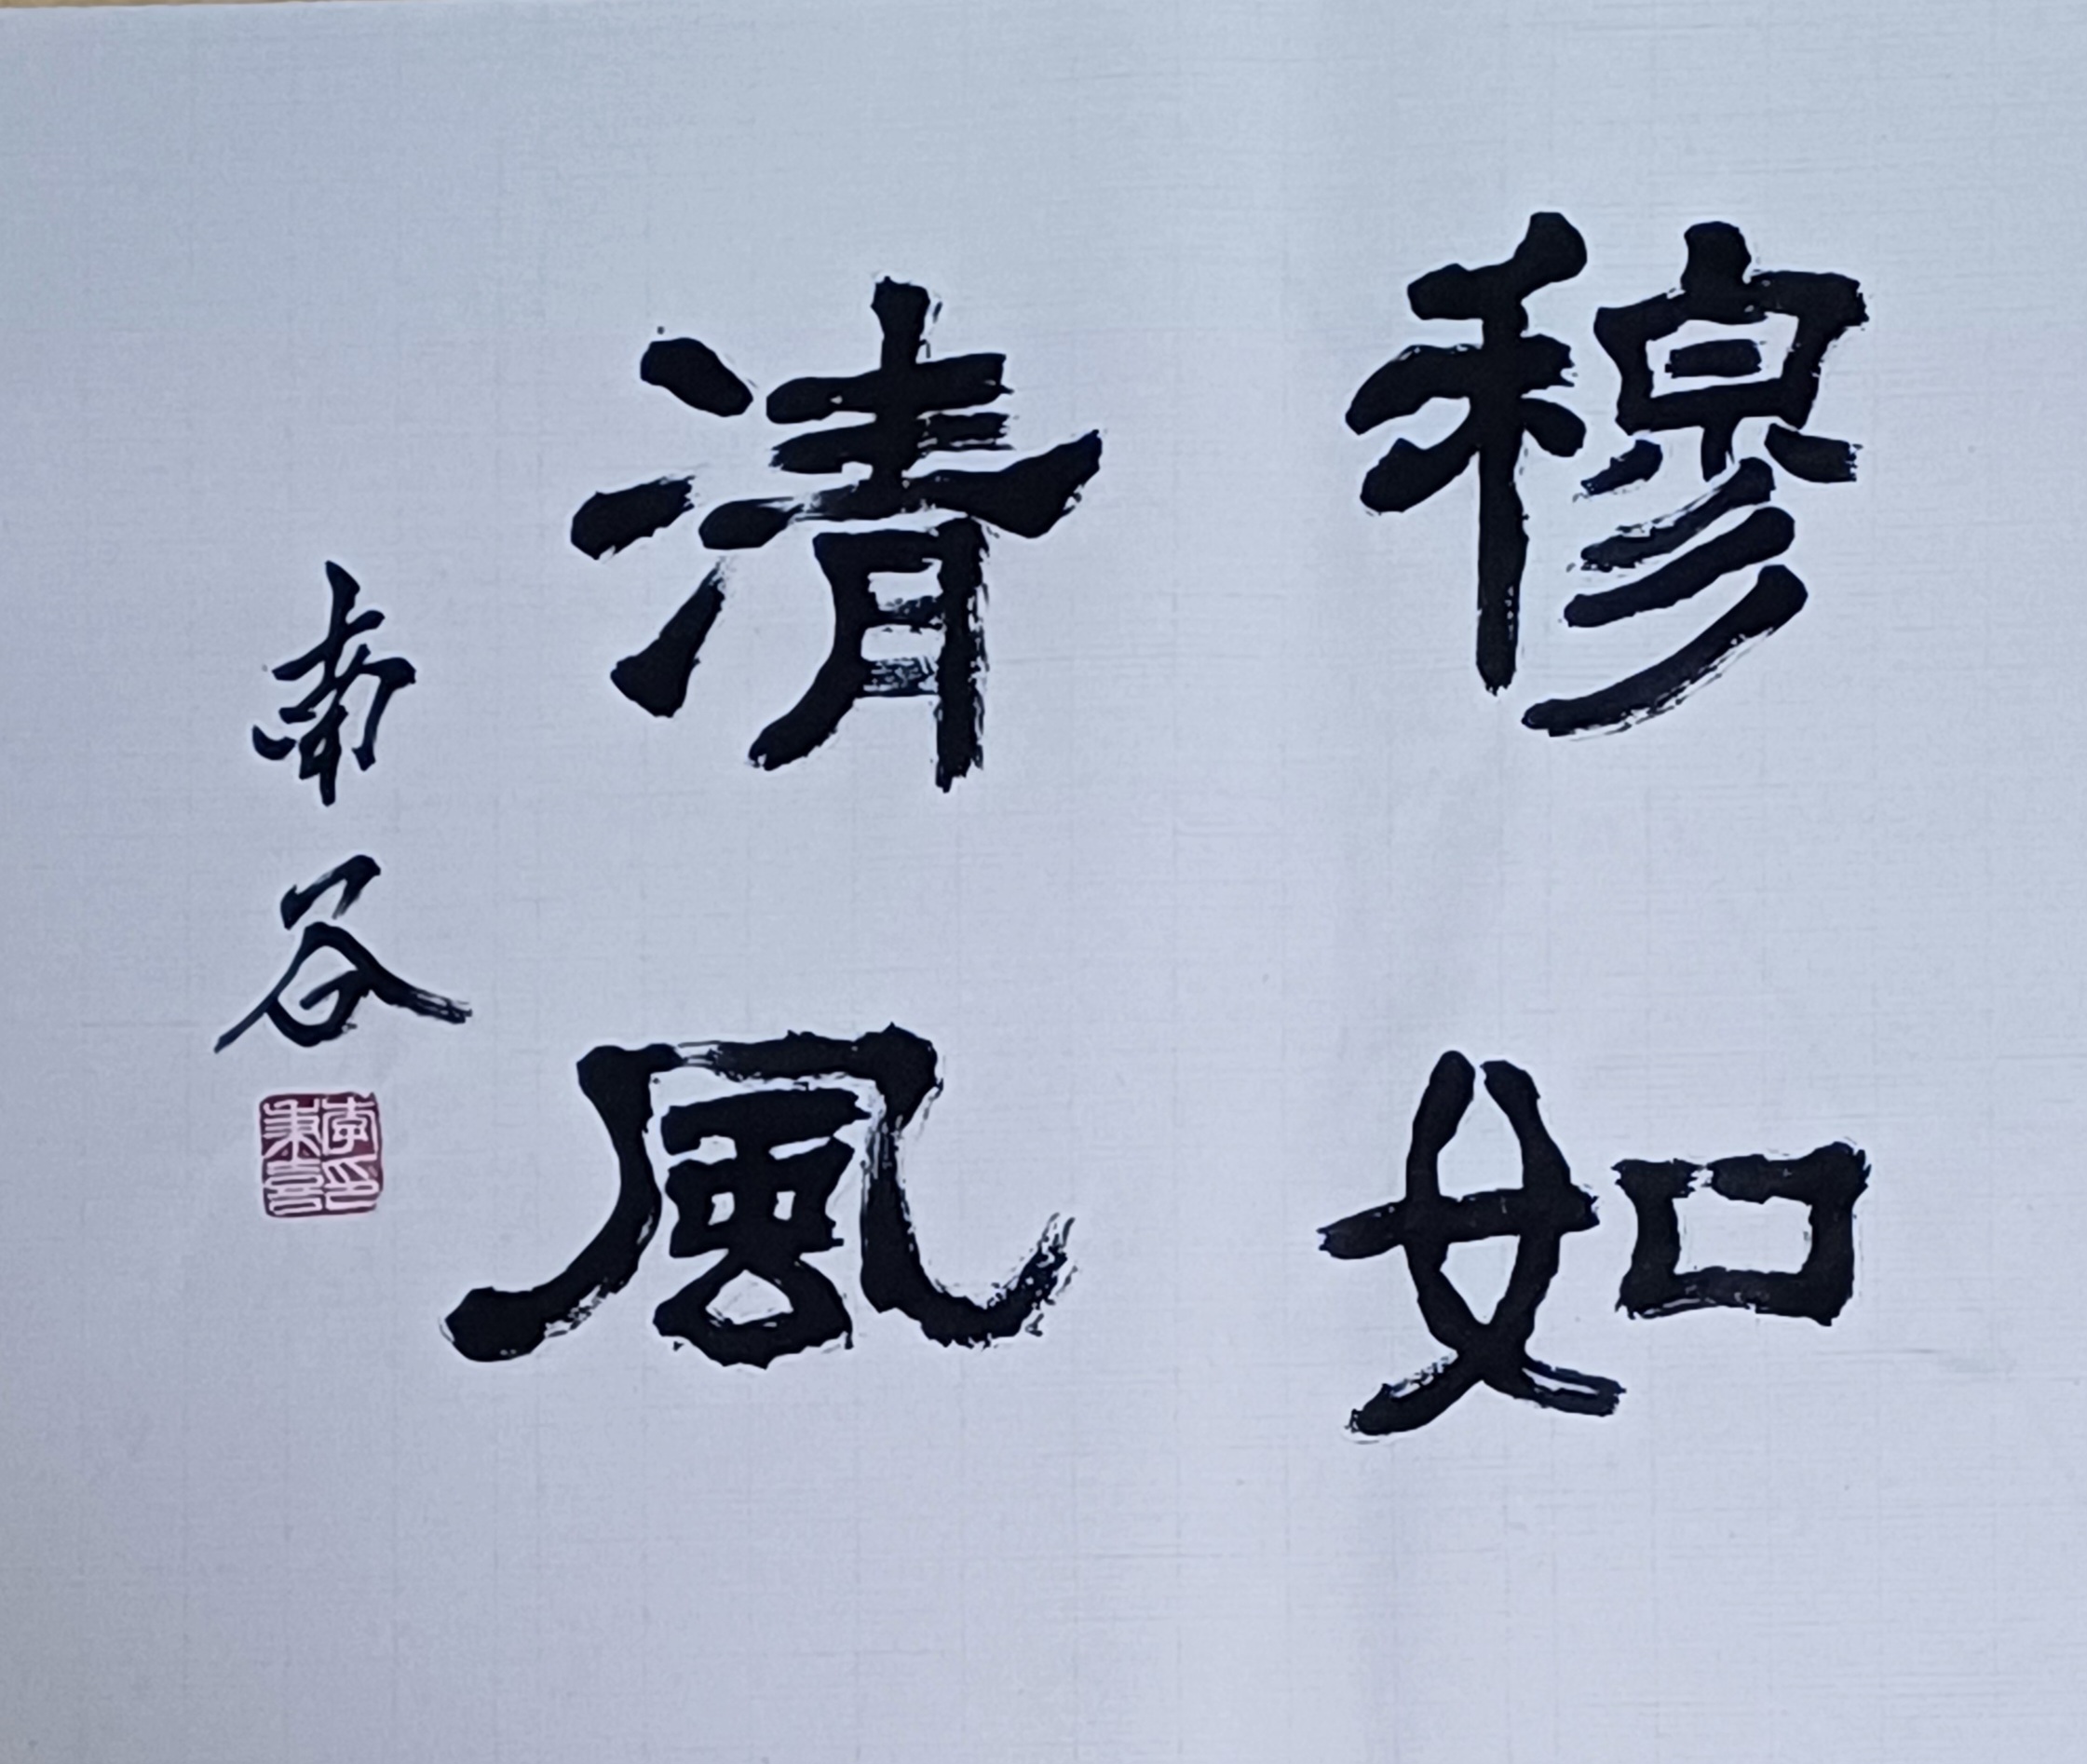 穆如
清風
南谷